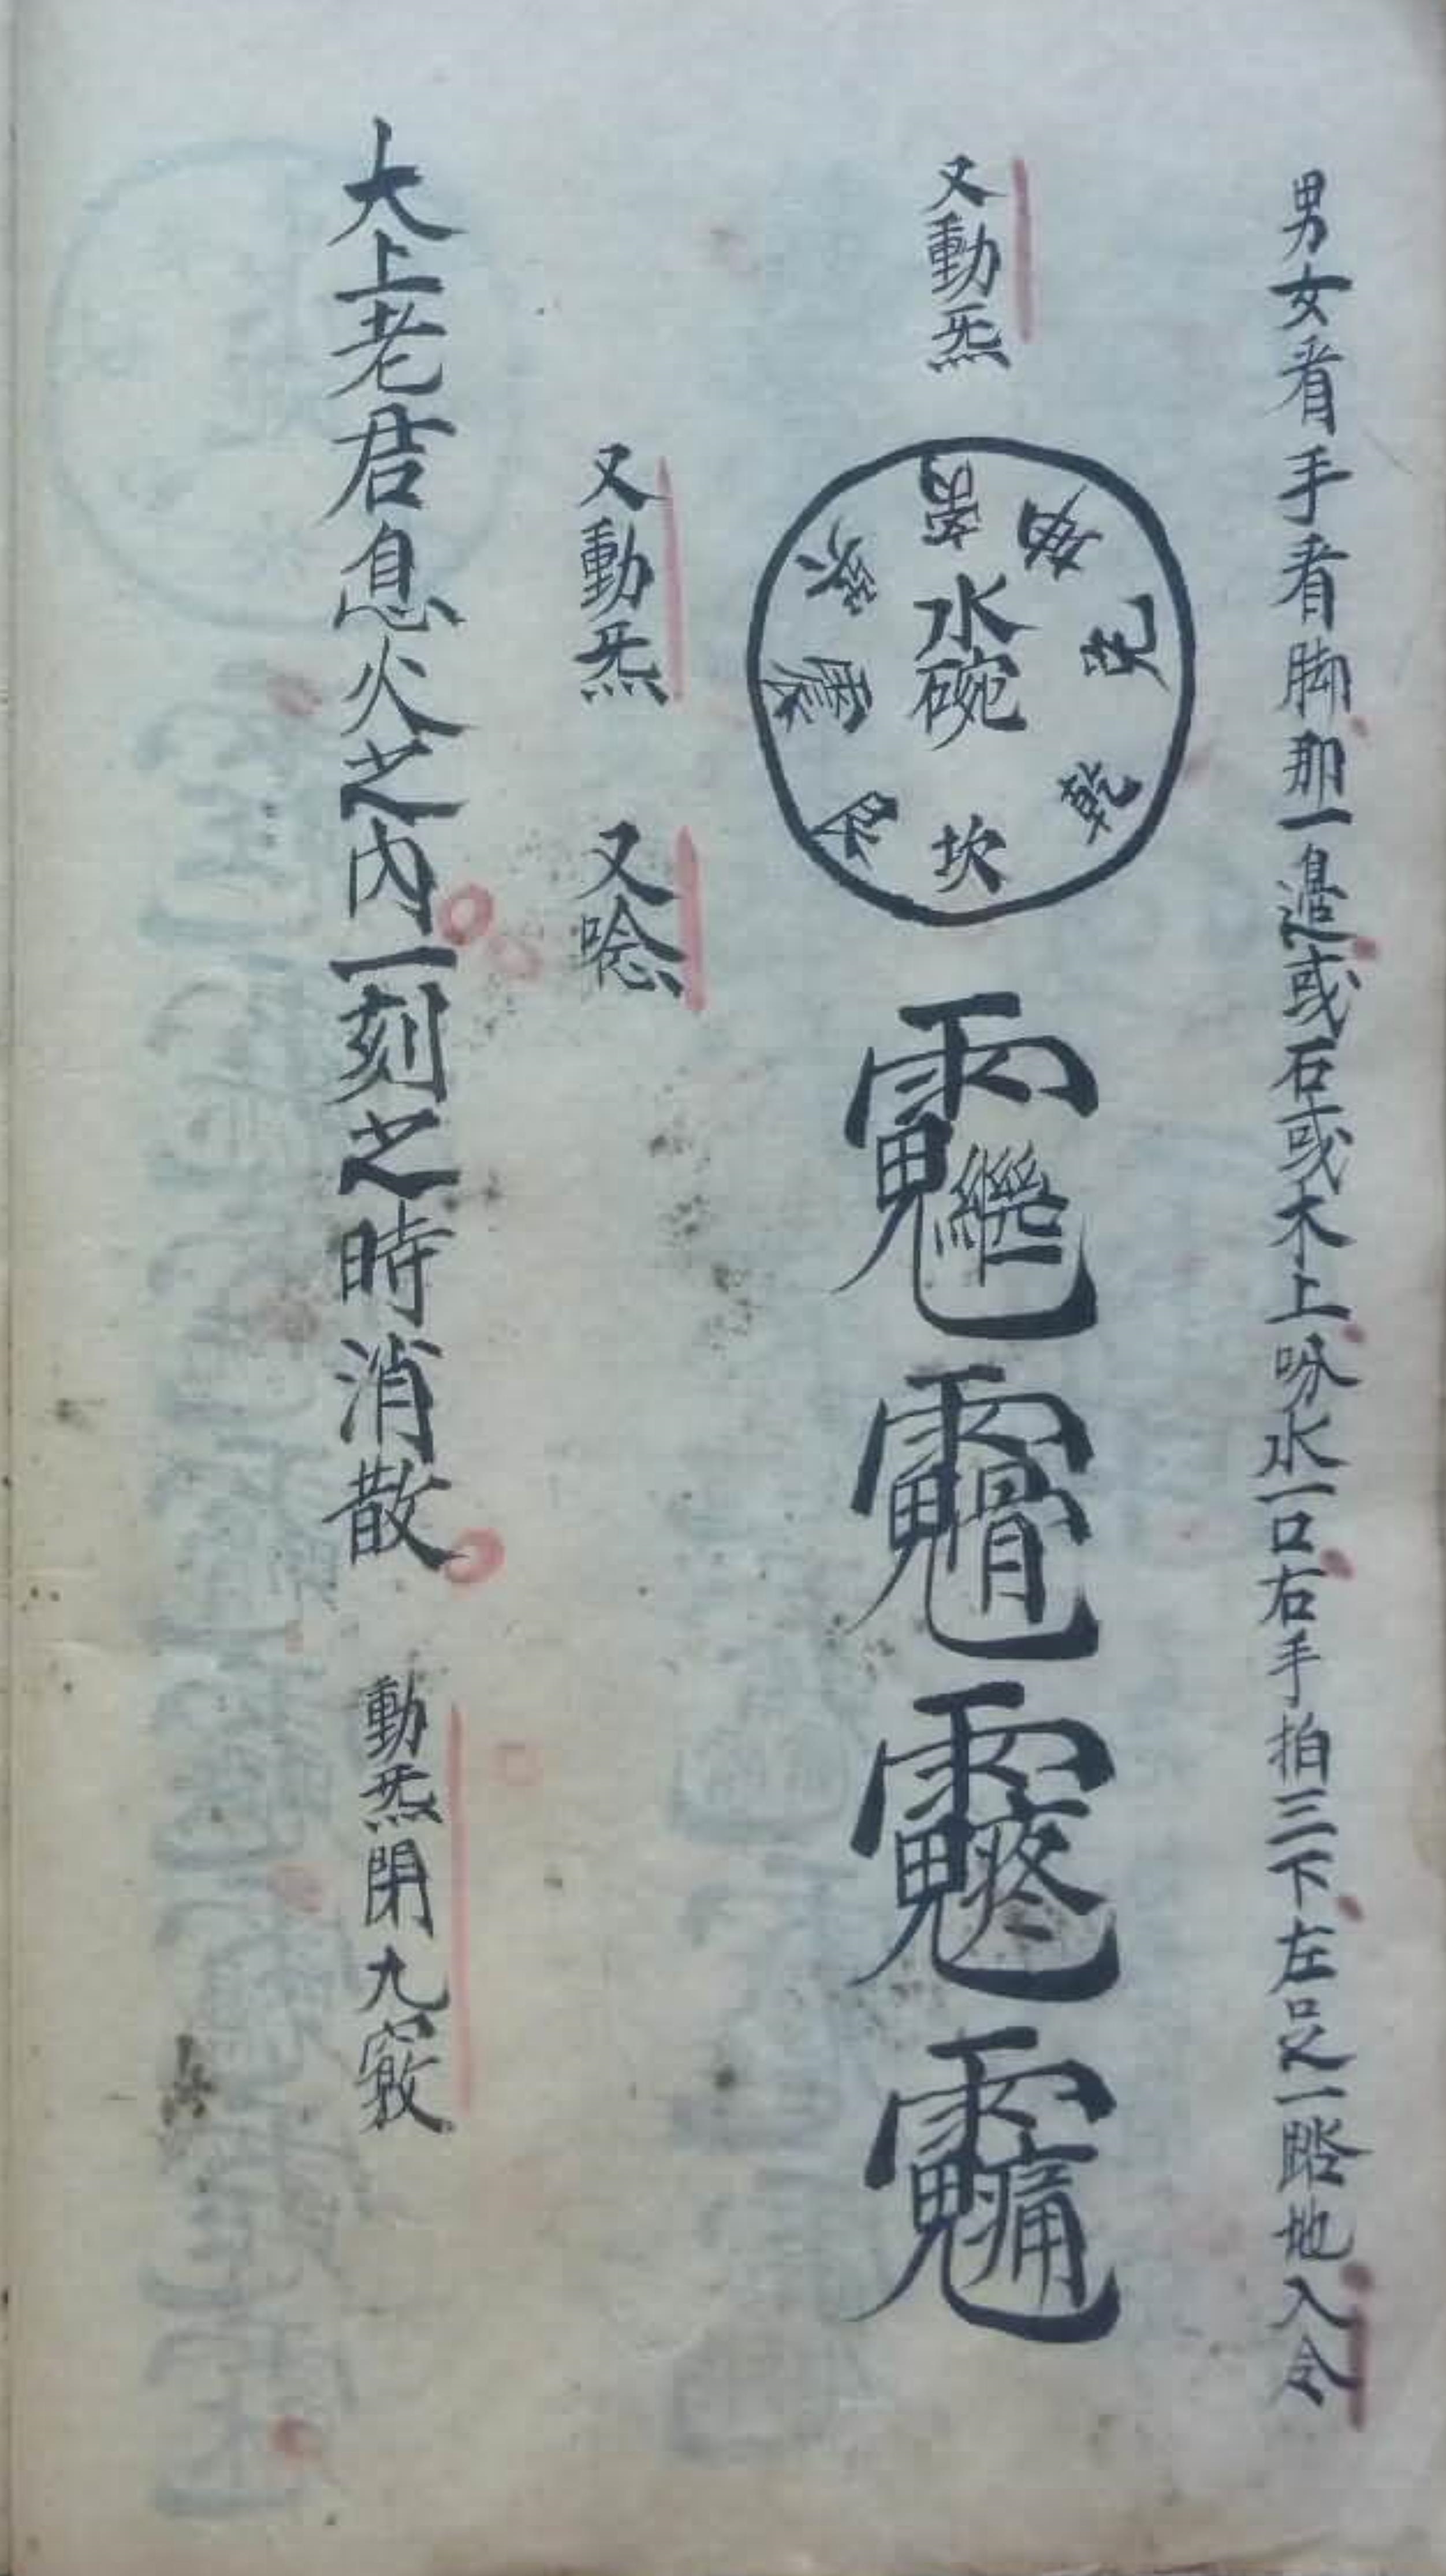 男女看手看脚那一邉或石或木上㕮水一口右手拍三下左足一踏地入令
又動炁
離坤兌乾坎艮震巽
水碗
又動炁 又唸
大上老君息火之內一刻之時消散 動炁閉九竅